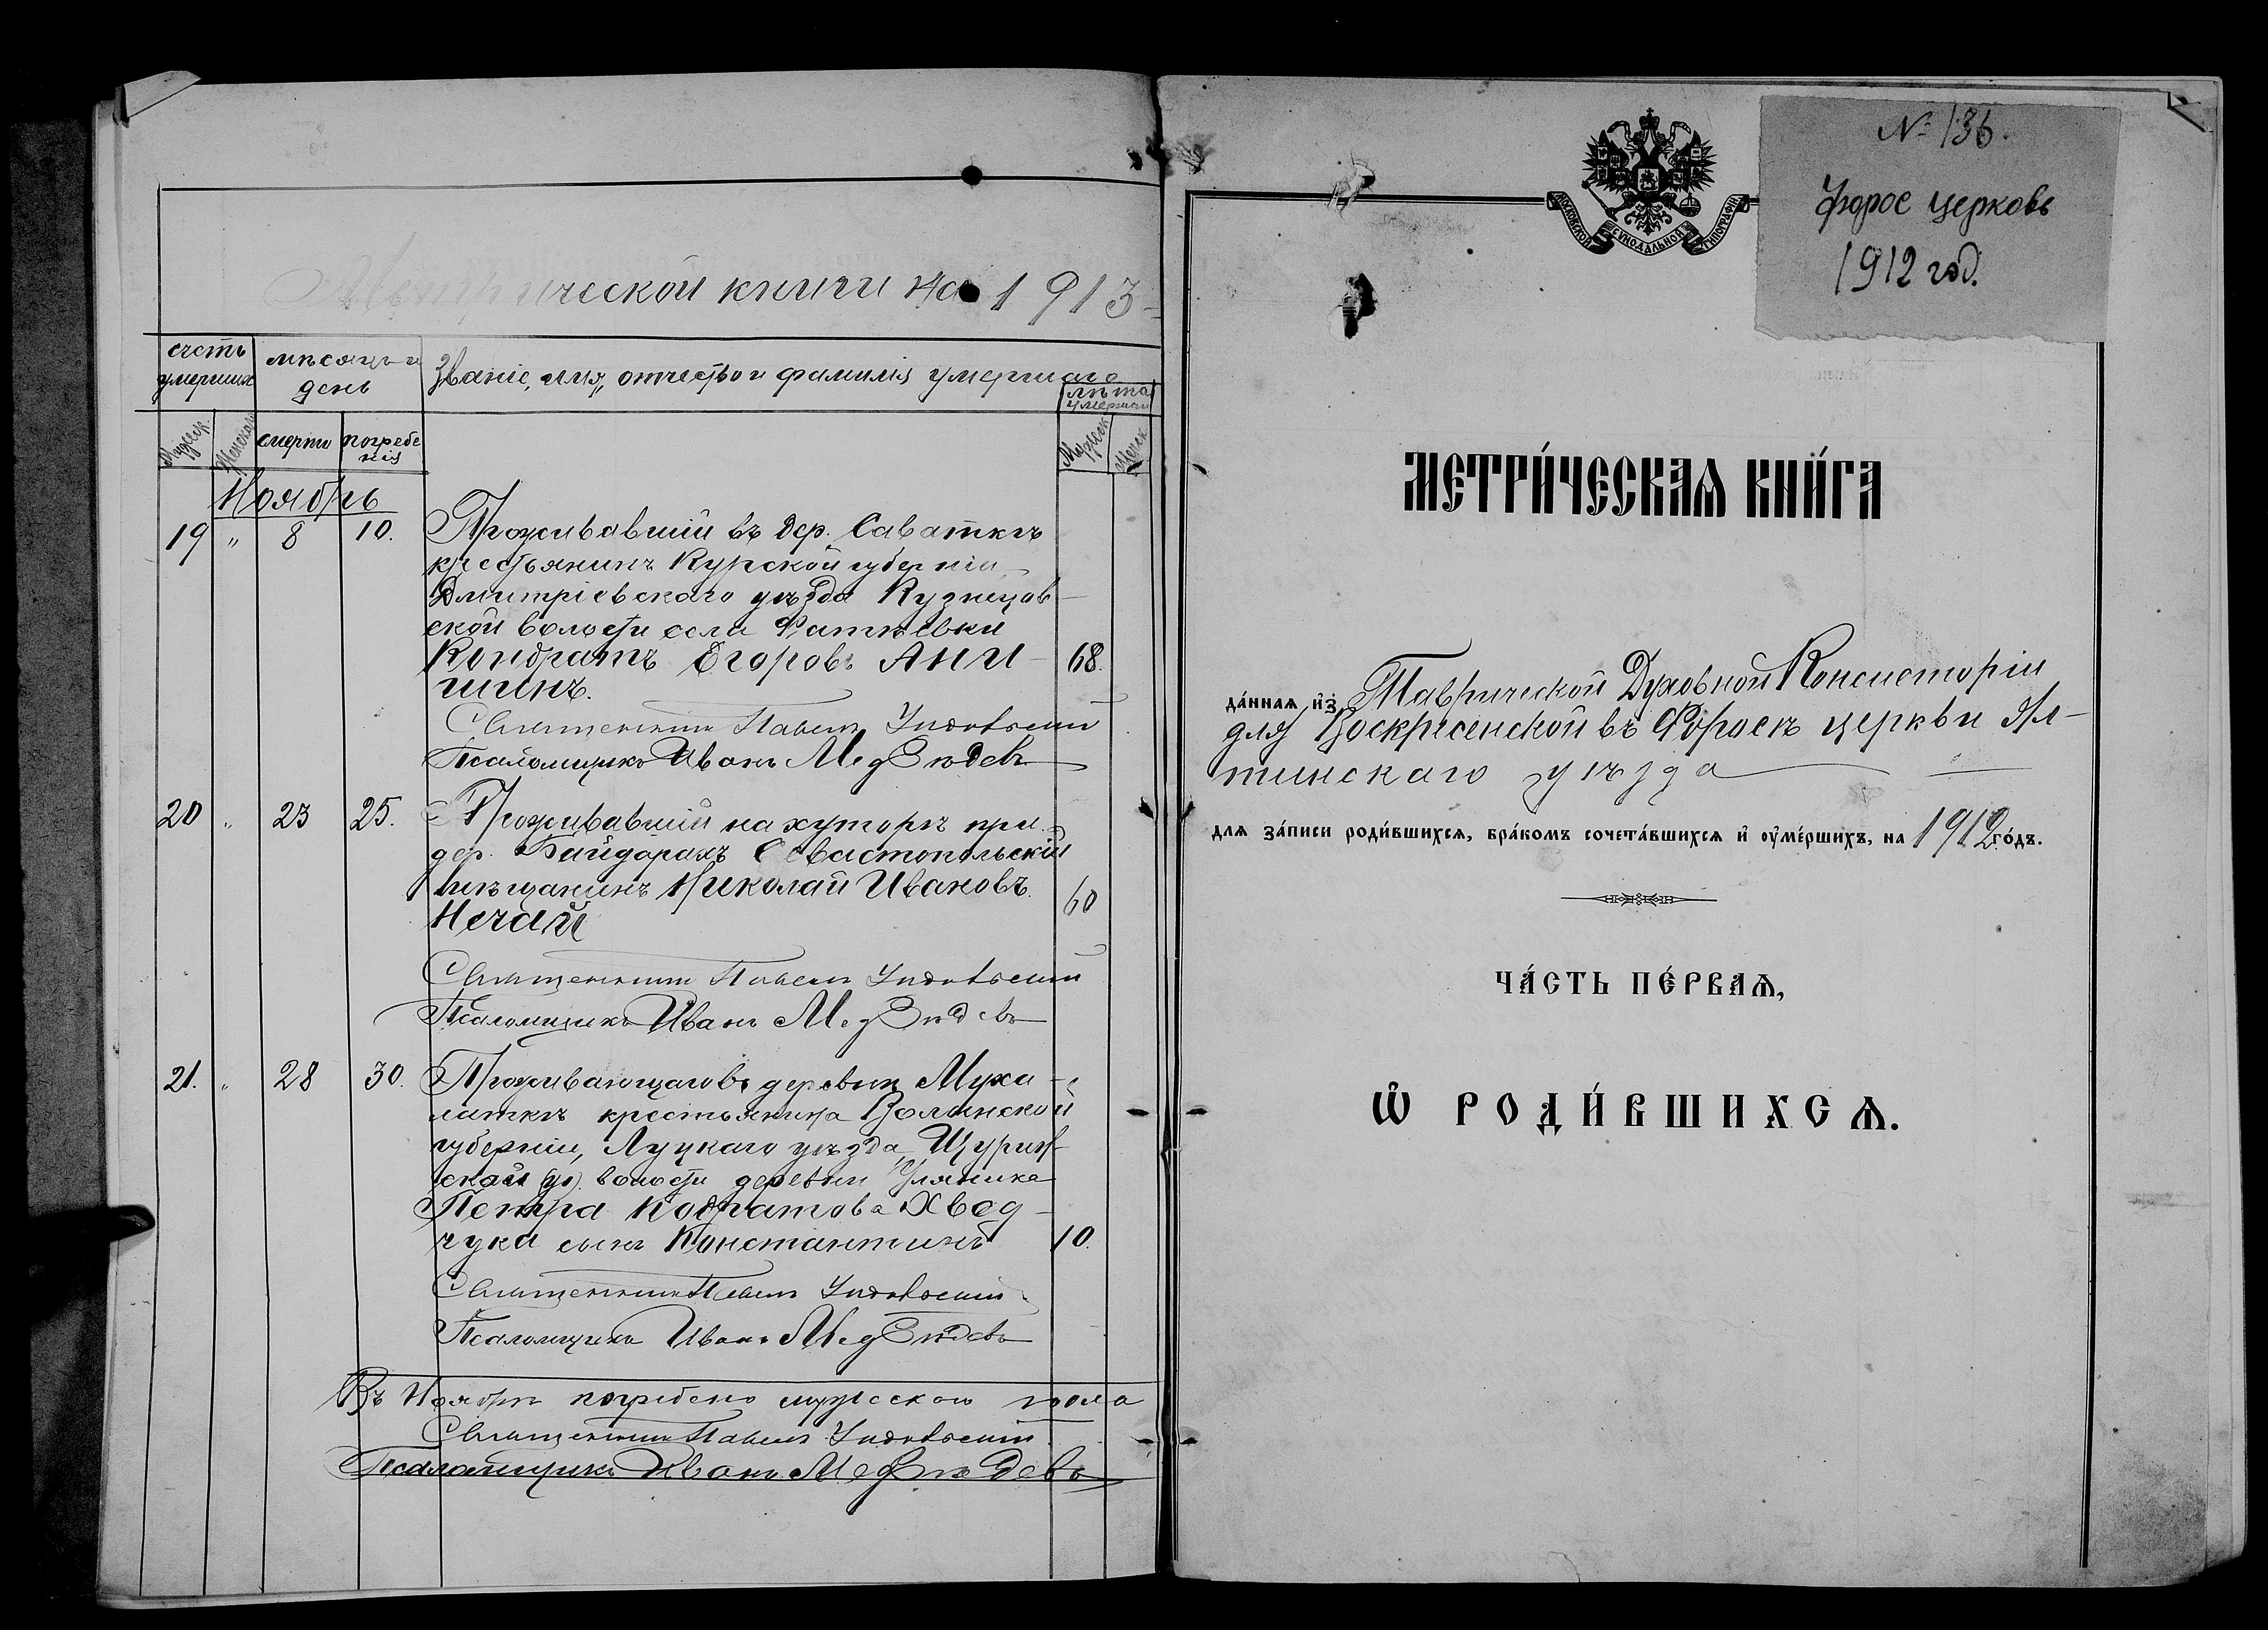 Метрической книги на 1913
счетъ умершихъ
мѣсяцъ и день
Званіе, имя, отчество и фамилія умершаго
лѣта умершаго
Мужеск.
Женскаго
смерти
погребенія
Мужеск.
Женск.
Ноябрь
19 " 8 10. Проживавшій въ дер. Саваткѣ
крестьянинъ Курской губерніи
Дмитріевскаго уѣзда Кузнецов-
ской волости села Фатѣевки
Кондратъ Егоровъ Ани- 68.
шинъ.
Священникъ Павелъ
Псаломщикъ Иванъ Медвѣдевъ
20 " 23 25. Проживавшій на хуторѣ при
дер. Байдарахъ Севастопольскій
мѣщанинъ Николай Ивановъ 60
Нечай
Священникъ Павелъ
Псаломщикъ Иванъ Медвѣдевъ
21. " 28 30. Проживающаго въ деревнѣ Муха-
латкѣ крестьянина Волынской
губерніи, Луцкаго уѣзда, Щурин-
ской волости деревни
Петра Кодратова Хвед-
чука сынъ Константинъ 10.
Священникъ Павелъ
Псаломщикъ Иванъ Медвѣдевъ
Въ Ноябрѣ погребено мужескаго пола
Священникъ Павелъ
Псаломщикъ Иванъ Медвѣдевъ
№ 136.
Форос церковь
1912 год.
МОСКОВСКОЙ СѴНОДАЛЬНОЙ ТИПОГРАФІИ
МЕТРИ́ЧЕСКАѦ КНИ́ГА
да́ннаѧ и҆з̾ Таврической Духовной Консисторіи
для Воскресенской въ Форосѣ церкви Ял-
тинскаго уѣзда
длѧ за́писи роди́вшихсѧ, бра́комъ сочета́вшихсѧ и҆ ᲂу҆ме́ршихъ, на 1912 го́дъ.
ЧА́СТЬ ПЕ́РВАѦ,
Ѽ РОДИ́ВШИХСѦ.